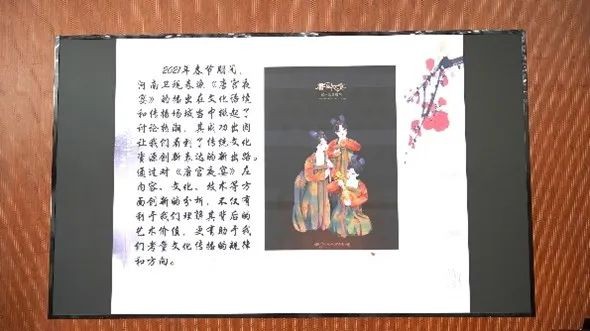 2021年春节期间，
河南卫视表演《唐宫夜
宴》的播出在文化语境
和传播场域当中掀起了
讨论热潮，其成功出圈
让我们看到了传统文化
资源创新表达的新出路。
通过对《唐宫夜宴》在
内容、文化、技术等方
面创新的分析，不仅有
利于我们理解其背后的
艺术价值，更有助于我
们考量文化传播的规律
和方向。
唐宫夜宴